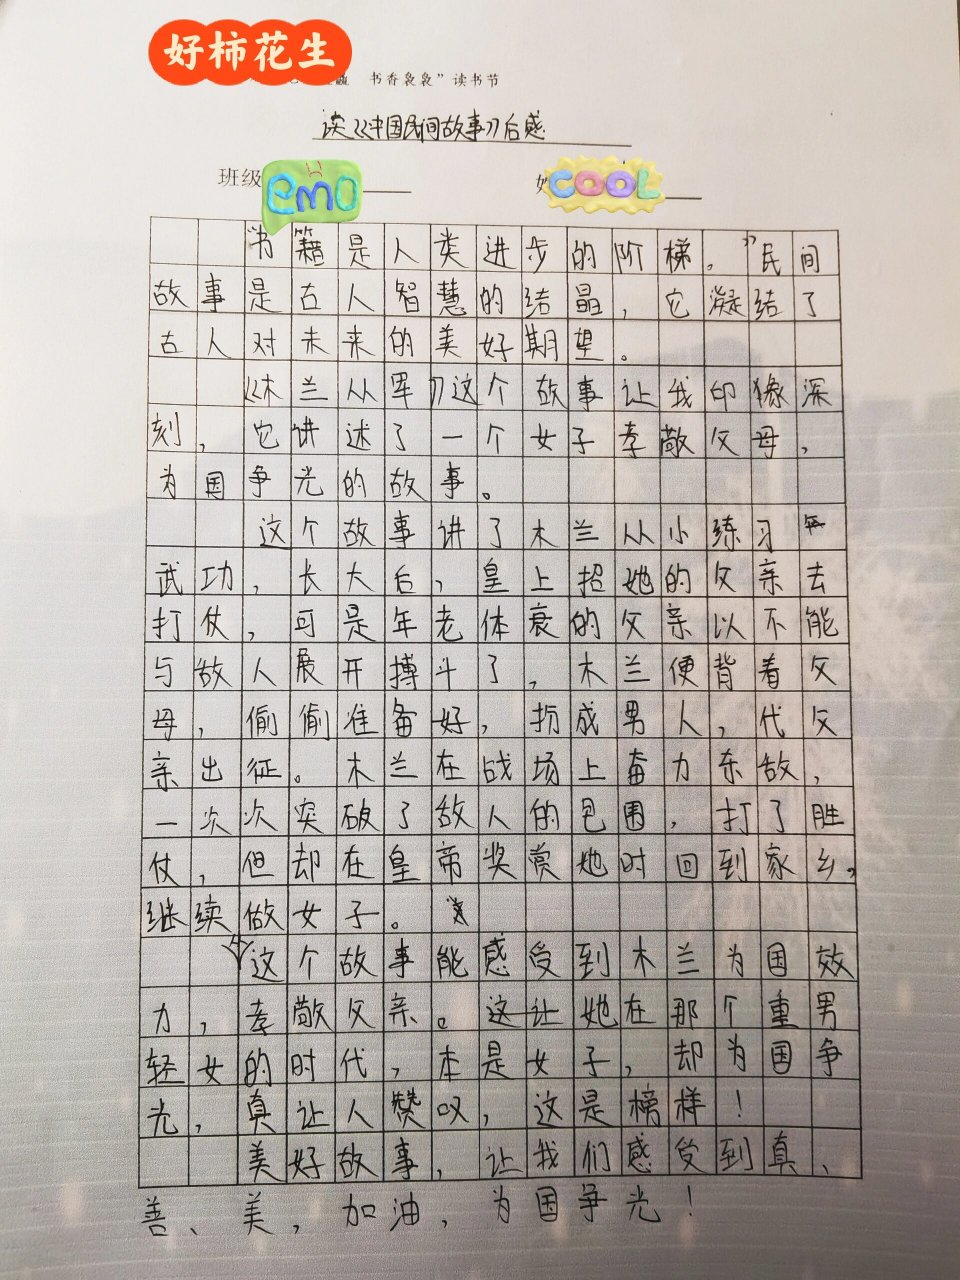 好柿花生
书香袅袅”读书节
读《中国民间故事》后感
班级
emo
COOL
“书籍是人类进步的阶梯。”民间
故事是古人智慧的结晶，它凝结了
古人对未来的美好期望。
《木兰从军》这个故事让我印像深
刻，它讲述了一个女子孝敬父母，
为国争光的故事。
这个故事讲了木兰从小练习
武功，长大后，皇上招她的父亲去
打仗，可是年老体衰的父亲以不能
与敌人展开搏斗了，木兰便背着父
母，偷偷准备好，扮成男人，代父
亲出征。木兰在战场上奋力东敌，
一次次突破了敌人的包围，打了胜
仗，但却在皇帝奖赏她时回到家乡，
继续做女子。
这个故事能感受到木兰为国效
力，孝敬父亲。这让她在那个重男
轻女的时代，本是女子，却为国争
光，真让人赞叹，这是榜样！
美好故事，让我们感受到真、
善、美，加油，为国争光！